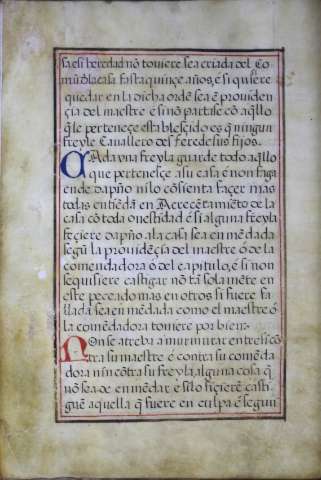 sa, e si heredad nõ toviere sea criada del Co
mũ dla casa fasta quinçe años, e si quiere
quedar en la dicha ordẽ sea ẽ providen
çia del maestre é si nõ partase cõ aq̃llo
q̃ le perteneçe establesçido es q̃ ningun
freyle Cavallero des sus fijos.
CAda vna freyla guarde todo aq̃llo
que pertenesçe a su casa é non faga
ende dapño nilo cõsienta façer mas
todas entiẽdã en Acrecẽtamiẽto de la
casa cõ toda ovestidad é si alguna freyla
feçiere dapño ala casa sea en mẽdada
segũ la providẽçia del maestre ó de la
comendadora ó del capitulo, é si non
se quisiere castigar nõ tã sola mẽte en
este peccado mas en otros si fuere fa
llada sea en mẽdada como el maestre ó
la comẽdadora toviere por bien:
NOn se atreba a murmurar entresi cõ
tra su maestre é contra su comẽda
dora nin cõtra su freyla alguna cosa q̃
nõ sea de en mẽdar, é silo fiçierẽ casti
guẽ aquella q̃ fuere en culpa é segun